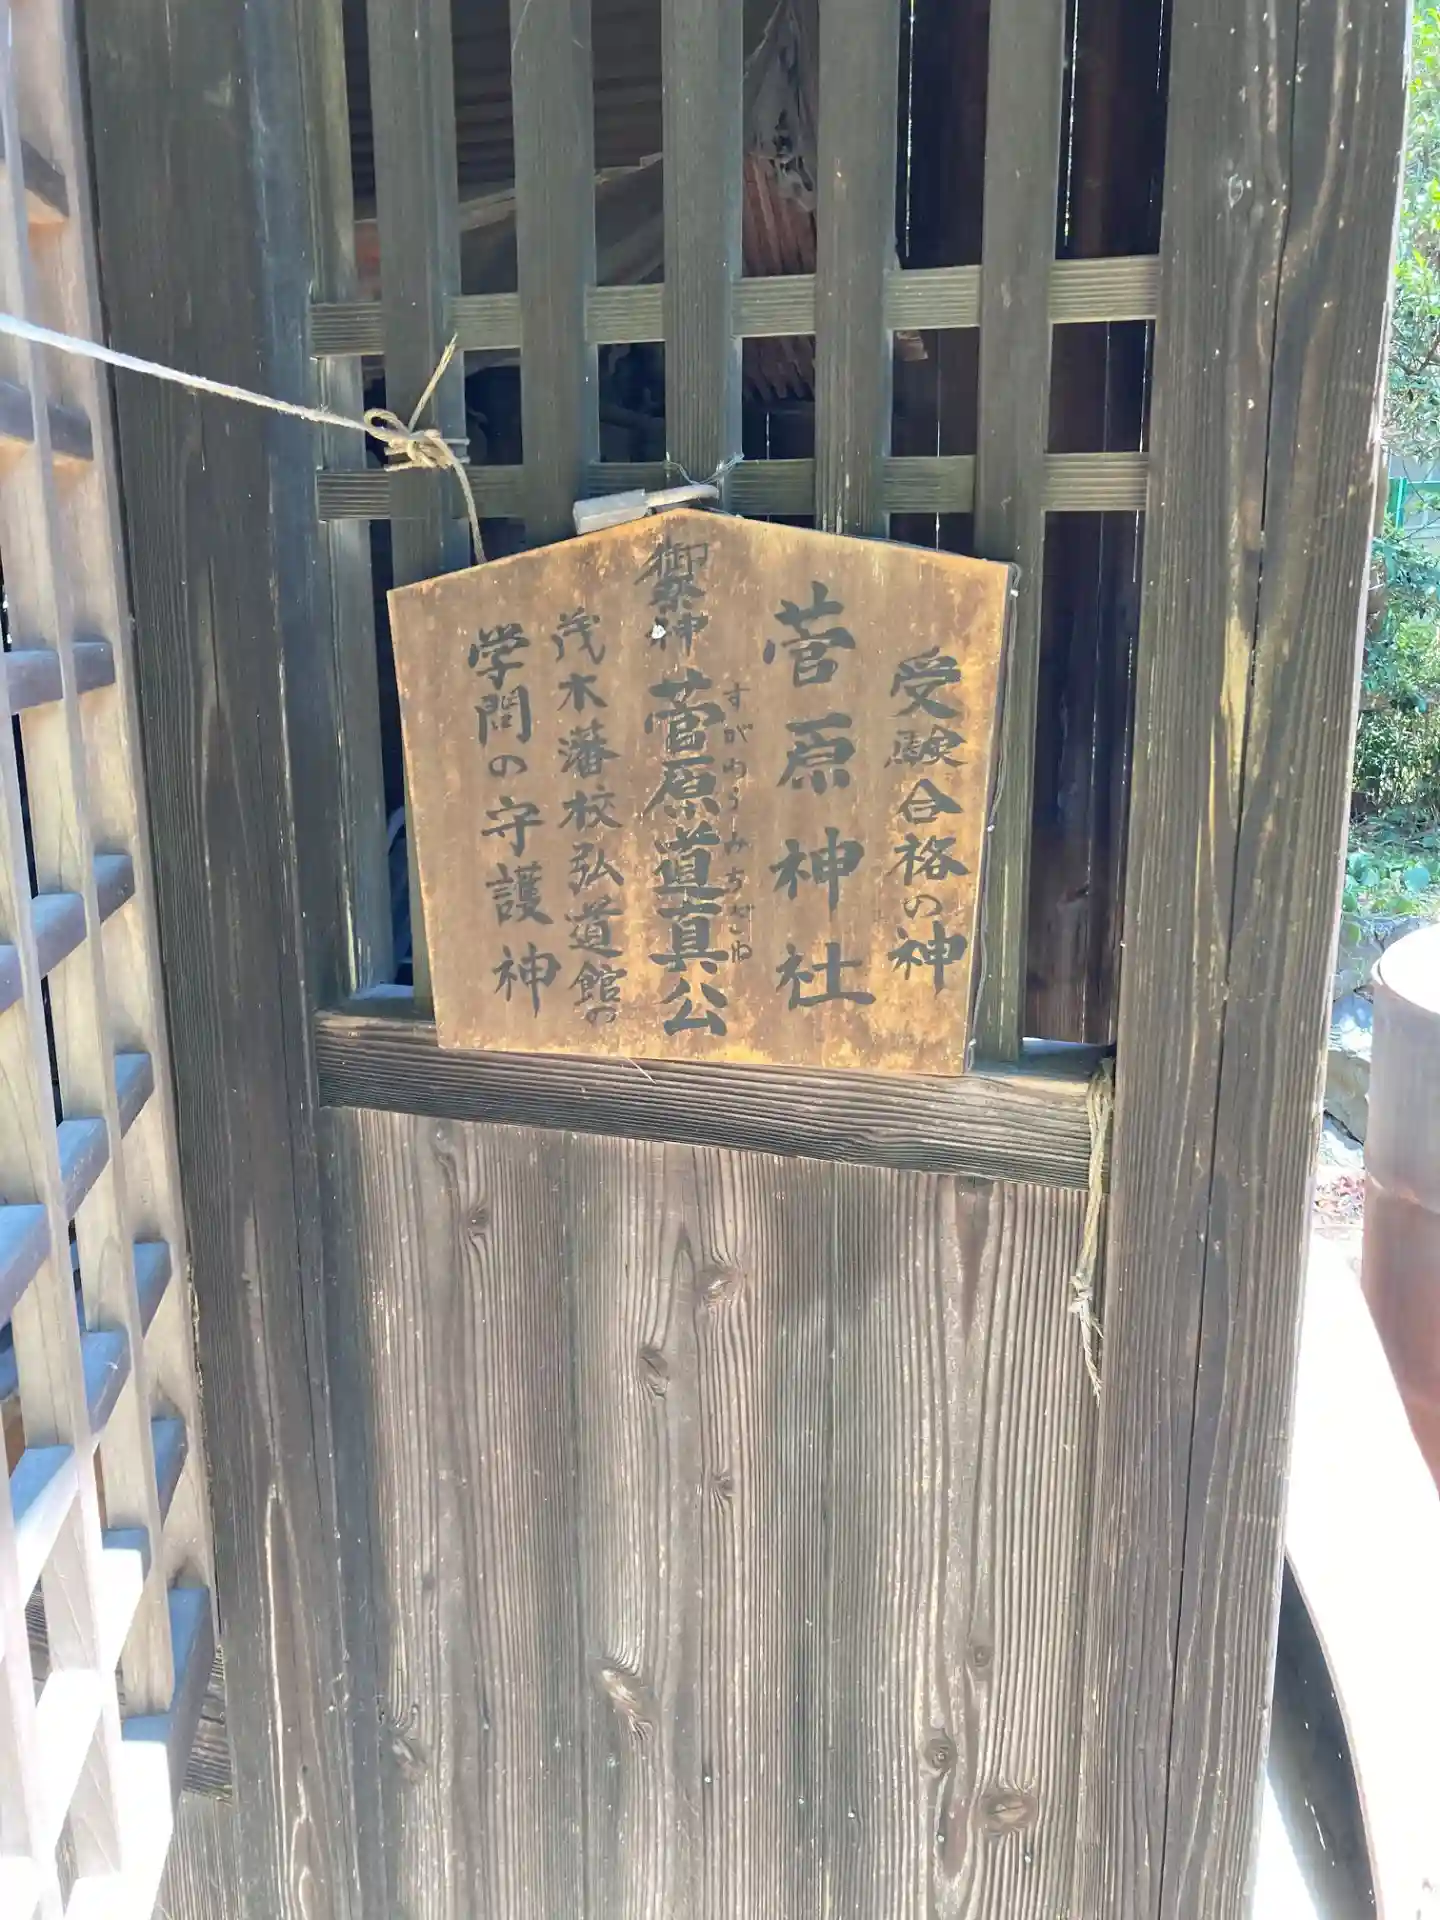 受験合格の神
菅原神社
御祭神 菅原道真公
すがわらみちざね
茂木藩校弘道館の
学問の守護神